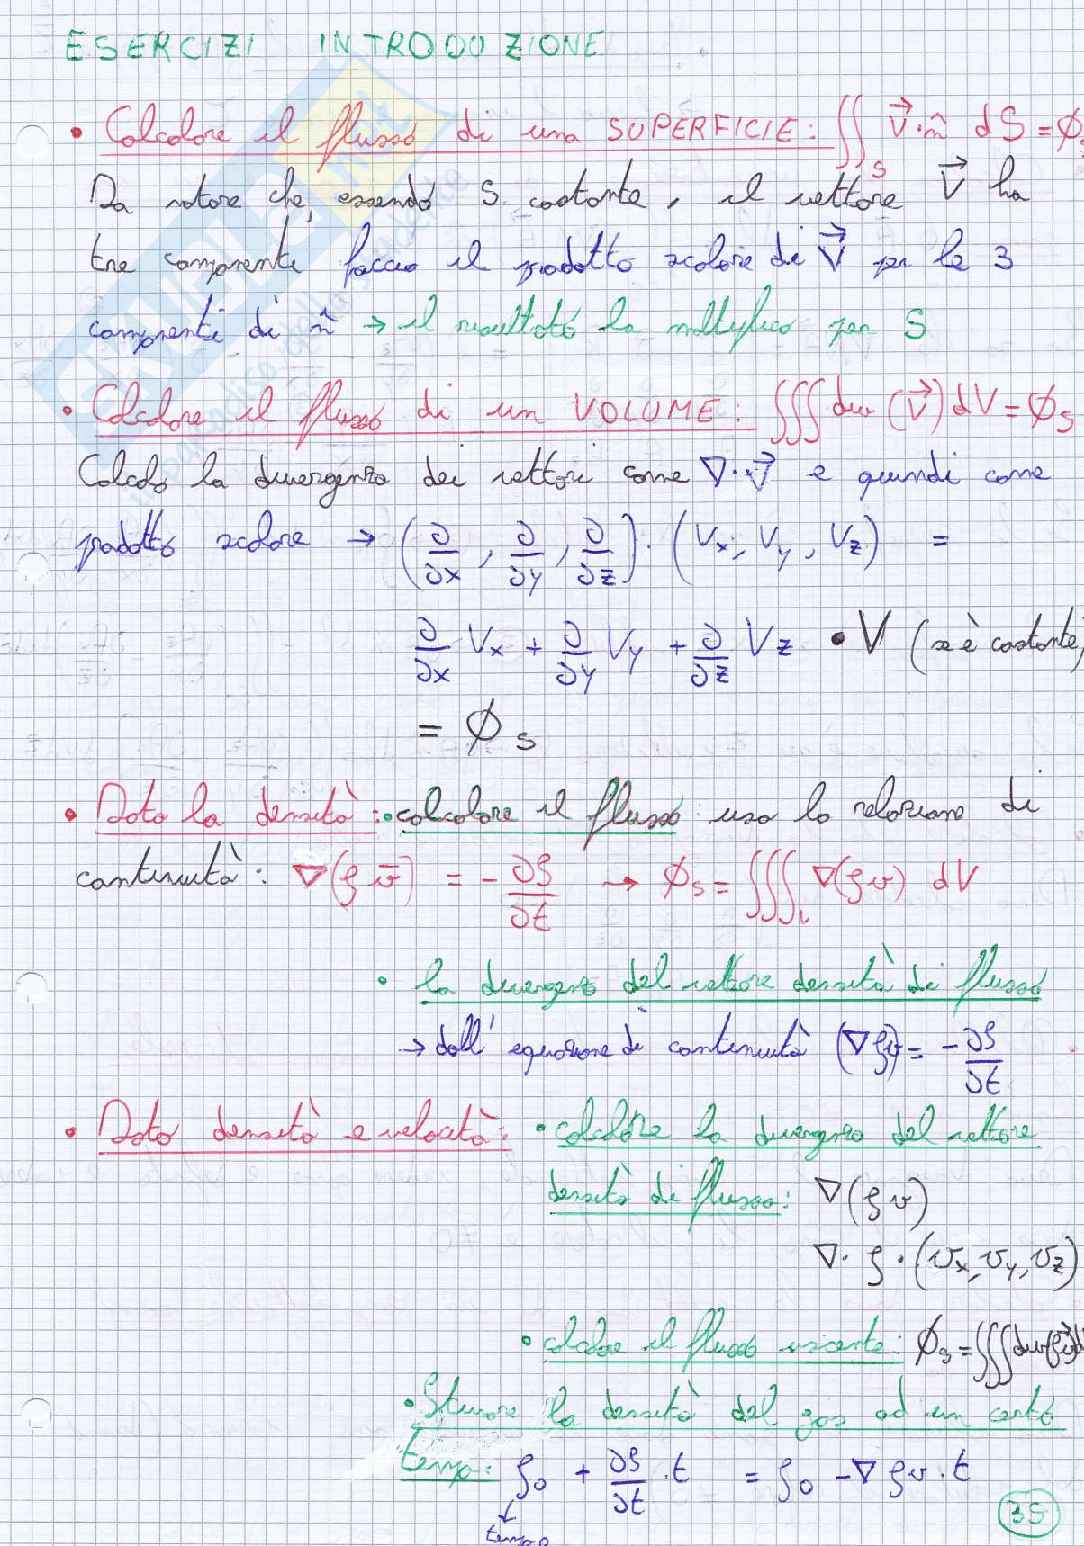 ESERCIZI INTRODUZIONE
• Calcolare il flusso di una SUPERFICIE: ∬_S V⃗·n̂ dS = ϕ_S
Da notare che, essendo S costante, il vettore V⃗ ha
tre componenti faccio il prodotto scalare di V⃗ per le 3
componenti di n̂ → il risultato lo moltiplico per S
• Calcolare il flusso di un VOLUME: ∭ div (V⃗) dV = ϕ_S
Calcolo la divergenza dei vettori come ∇·V⃗ e quindi come
prodotto scalare → (∂/∂x, ∂/∂y, ∂/∂z) · (Vx, Vy, Vz) =
∂/∂x Vx + ∂/∂y Vy + ∂/∂z Vz • V (se è costante)
= ϕ_S
• Data la densità: • calcolare il flusso uso la relazione di
continuità: ∇(ρ v̄) = - ∂ρ/∂t → ϕ_S = ∭ ∇(ρv) dV
• la divergenza del vettore densità di flusso
→ dall'equazione di continuità (∇ρv̄) = - ∂ρ/∂t
• Dato densità e velocità: • calcolare la divergenza del vettore
densità di flusso: ∇(ρv)
∇· ρ · (vx, vy, vz)
• calcolare il flusso uscente: ϕ_S = ∭ div(ρv⃗)d
• Stimare la densità del gas ad un certo
tempo: ρ0 + ∂ρ/∂t · t = ρ0 - ∇ρv · t
↓
35